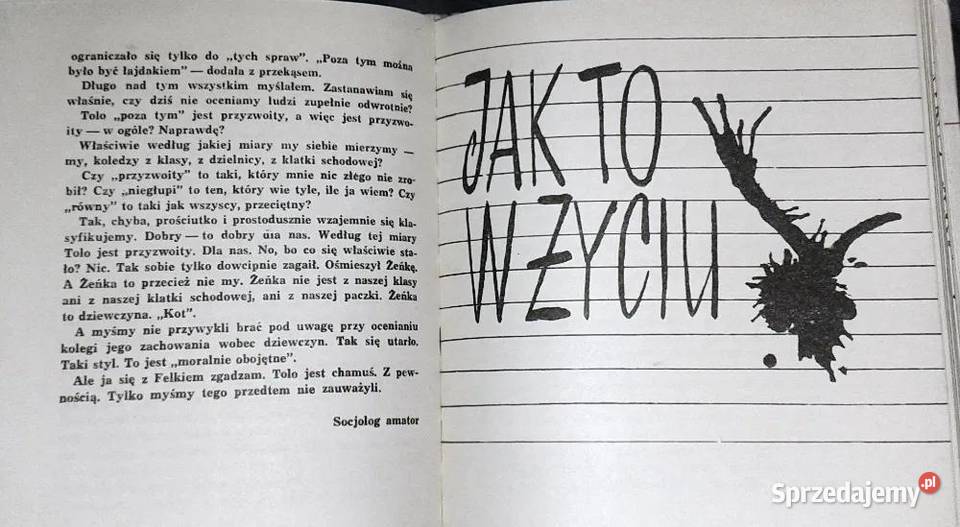 ograniczało się tylko do „tych spraw”. „Poza tym można
było być łajdakiem” — dodała z przekąsem.
Długo nad tym wszystkim myślałem. Zastanawiam się
właśnie, czy dziś nie oceniamy ludzi zupełnie odwrotnie?
Tolo „poza tym” jest przyzwoity, a więc jest przyzwo-
ity — w ogóle? Naprawdę?
Właściwie według jakiej miary my siebie mierzymy —
my, koledzy z klasy, z dzielnicy, z klatki schodowej?
Czy „przyzwoity” to taki, który mnie nic złego nie zro-
bił? Czy „niegłupi” to ten, który wie tyle, ile ja wiem? Czy
„równy” to taki jak wszyscy, przeciętny?
Tak, chyba, prościutko i prostodusznie wzajemnie się kla-
syfikujemy. Dobry — to dobry dla nas. Według tej miary
Tolo jest przyzwoity. Dla nas. No, bo co się właściwie sta-
ło? Nic. Tak sobie tylko dowcipnie zagaił. Ośmieszył Żeńkę.
A Żeńka to przecież nie my. Żeńka nie jest z naszej klasy
ani z naszej klatki schodowej, ani z naszej paczki. Żeńka
to dziewczyna. „Kot”.
A myśmy nie przywykli brać pod uwagę przy ocenianiu
kolegi jego zachowania wobec dziewczyn. Tak się utarło.
Taki styl. To jest „moralnie obojętne”.
Ale ja się z Felkiem zgadzam. Tolo jest chamuś. Z pew-
nością. Tylko myśmy tego przedtem nie zauważyli.
Socjolog amator
JAK TO
W ŻYCIU
Sprzedajemy.pl